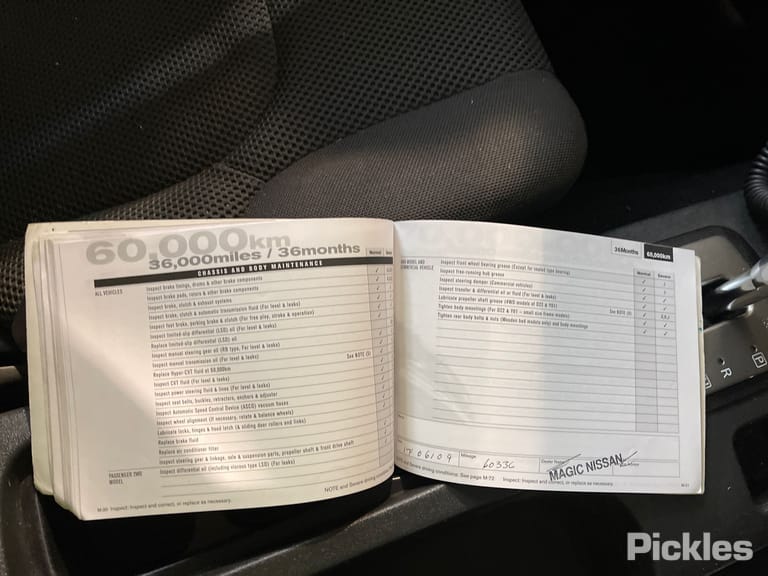 60,000km
36,000miles / 36months
CHASSIS AND BODY MAINTENANCE
Normal
ALL VEHICLES
Inspect brake linings, drums & other brake components
Inspect brake pads, rotors & other brake components
Inspect brake, clutch & exhaust systems
Inspect brake, clutch & automatic transmission fluid (For level & leaks)
Inspect foot brake, parking brake & clutch (For free play, stroke & operation)
Inspect limited-slip differential (LSD) oil (For level & leaks)
Replace limited-slip differential (LSD) oil
Inspect manual steering gear oil (RB type, For level & leaks)
Inspect manual transmission oil (For level & leaks)
Replace Hyper-CVT fluid at 60,000km See NOTE (5)
Inspect CVT fluid (For level & leaks)
Inspect power steering fluid & lines (For level & leaks)
Inspect seat belts, buckles, retractors, anchors & adjuster
Inspect Automatic Speed Control Device (ASCD) vacuum hoses
Inspect wheel alignment (If necessary, rotate & balance wheels)
Lubricate locks, hinges & hood latch (& sliding door rollers and links)
Replace brake fluid
Replace air conditioner filter
Inspect steering gear & linkage, axle & suspension parts, propeller shaft & front drive shaft
PASSENGER 2WD MODEL
Inspect differential oil (including viscous type LSD) (For leaks)
NOTE and Severe driving
Inspect: Inspect and correct, or replace as necessary.
36Months 60,000km
4WD MODEL AND COMMERCIAL VEHICLE
Normal Severe
Inspect front wheel bearing grease (Except for sealed type bearing)
Inspect free-running hub grease
Inspect steering damper (Commercial vehicles)
Inspect transfer & differential oil or fluid (For level & leaks)
Lubricate propeller shaft grease (4WD models of D22 & Y61) See NOTE (6)
Tighten body mountings (For D22 & Y61 – small size frame models)
Tighten rear body bolts & nuts (Wooden bed models only) and body mountings
17 06 09
Mileage
60336
MAGIC NISSAN
Severe driving conditions: See page M-72 Inspect: Inspect and correct, or replace as necessary.
R
P
Pickles